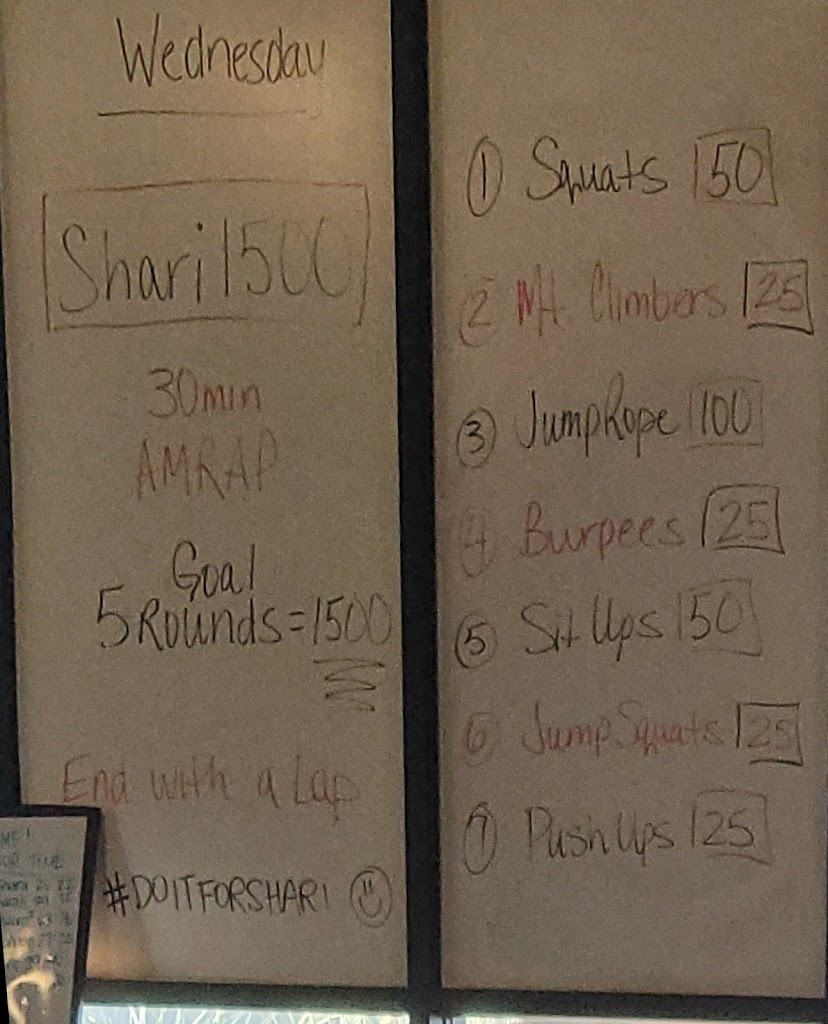 Wednesday
Shari 1500
30min
AMRAP
Goal
5 Rounds = 1500
End with a Lap
#DOITFORSHARI
1 Squats 50
2 Mt. Climbers 25
3 JumpRope 100
4 Burpees 25
5 Sit Ups 50
6 Jump Squats 25
7 Push Ups 25